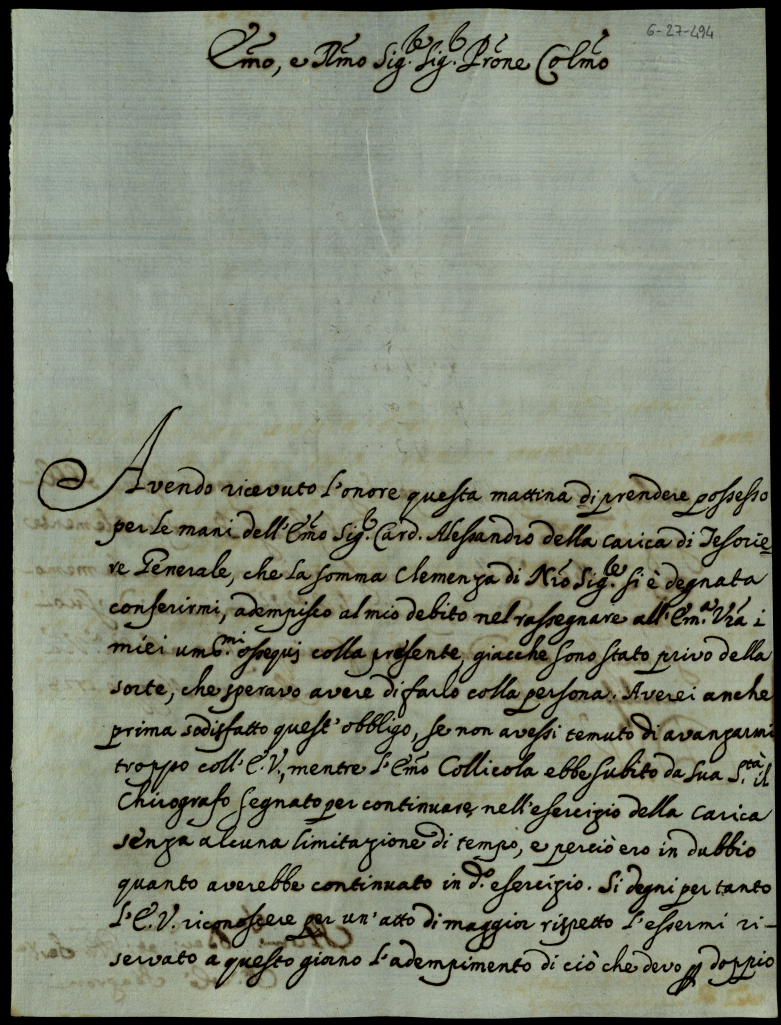 6-27-494
Em̃o, e Rm̃o Sig.re Sig.r Prõne Colm̃o
Avendo ricevuto l'onore questa mattina di prendere possesso
per le mani dell'Em̃o Sig.r Card. Alessandro della carica di Tesorie=
re Generale, che la somma Clemenza di Nr̃o Sig.re si è degnata
conferirmi, adempisco al mio debito nel rassegnare all'Em.a Vr̃a i
miei um̃.mi ossequj colla presente, giacche sono stato privo della
sorte, che speravo avere di farlo colla persona. Averei anche
prima sodisfatto quest'obbligo, se non avessi temuto di avanzarmi
troppo coll'E.V., mentre l'Em̃o Collicola ebbe subito da Sua S.ptà il
Chirografo segnato per continuare, nell'esercizio della carica
senza alcuna limitazione di tempo, e perciò ero in dubbio
quanto averebbe continuato in d.o esercizio. Si degni per tanto
l'E.V. riconoscere per un'atto di maggior rispetto l'essermi ri-
servato a questo giorno l'adempimento di ciò che devo p doppio